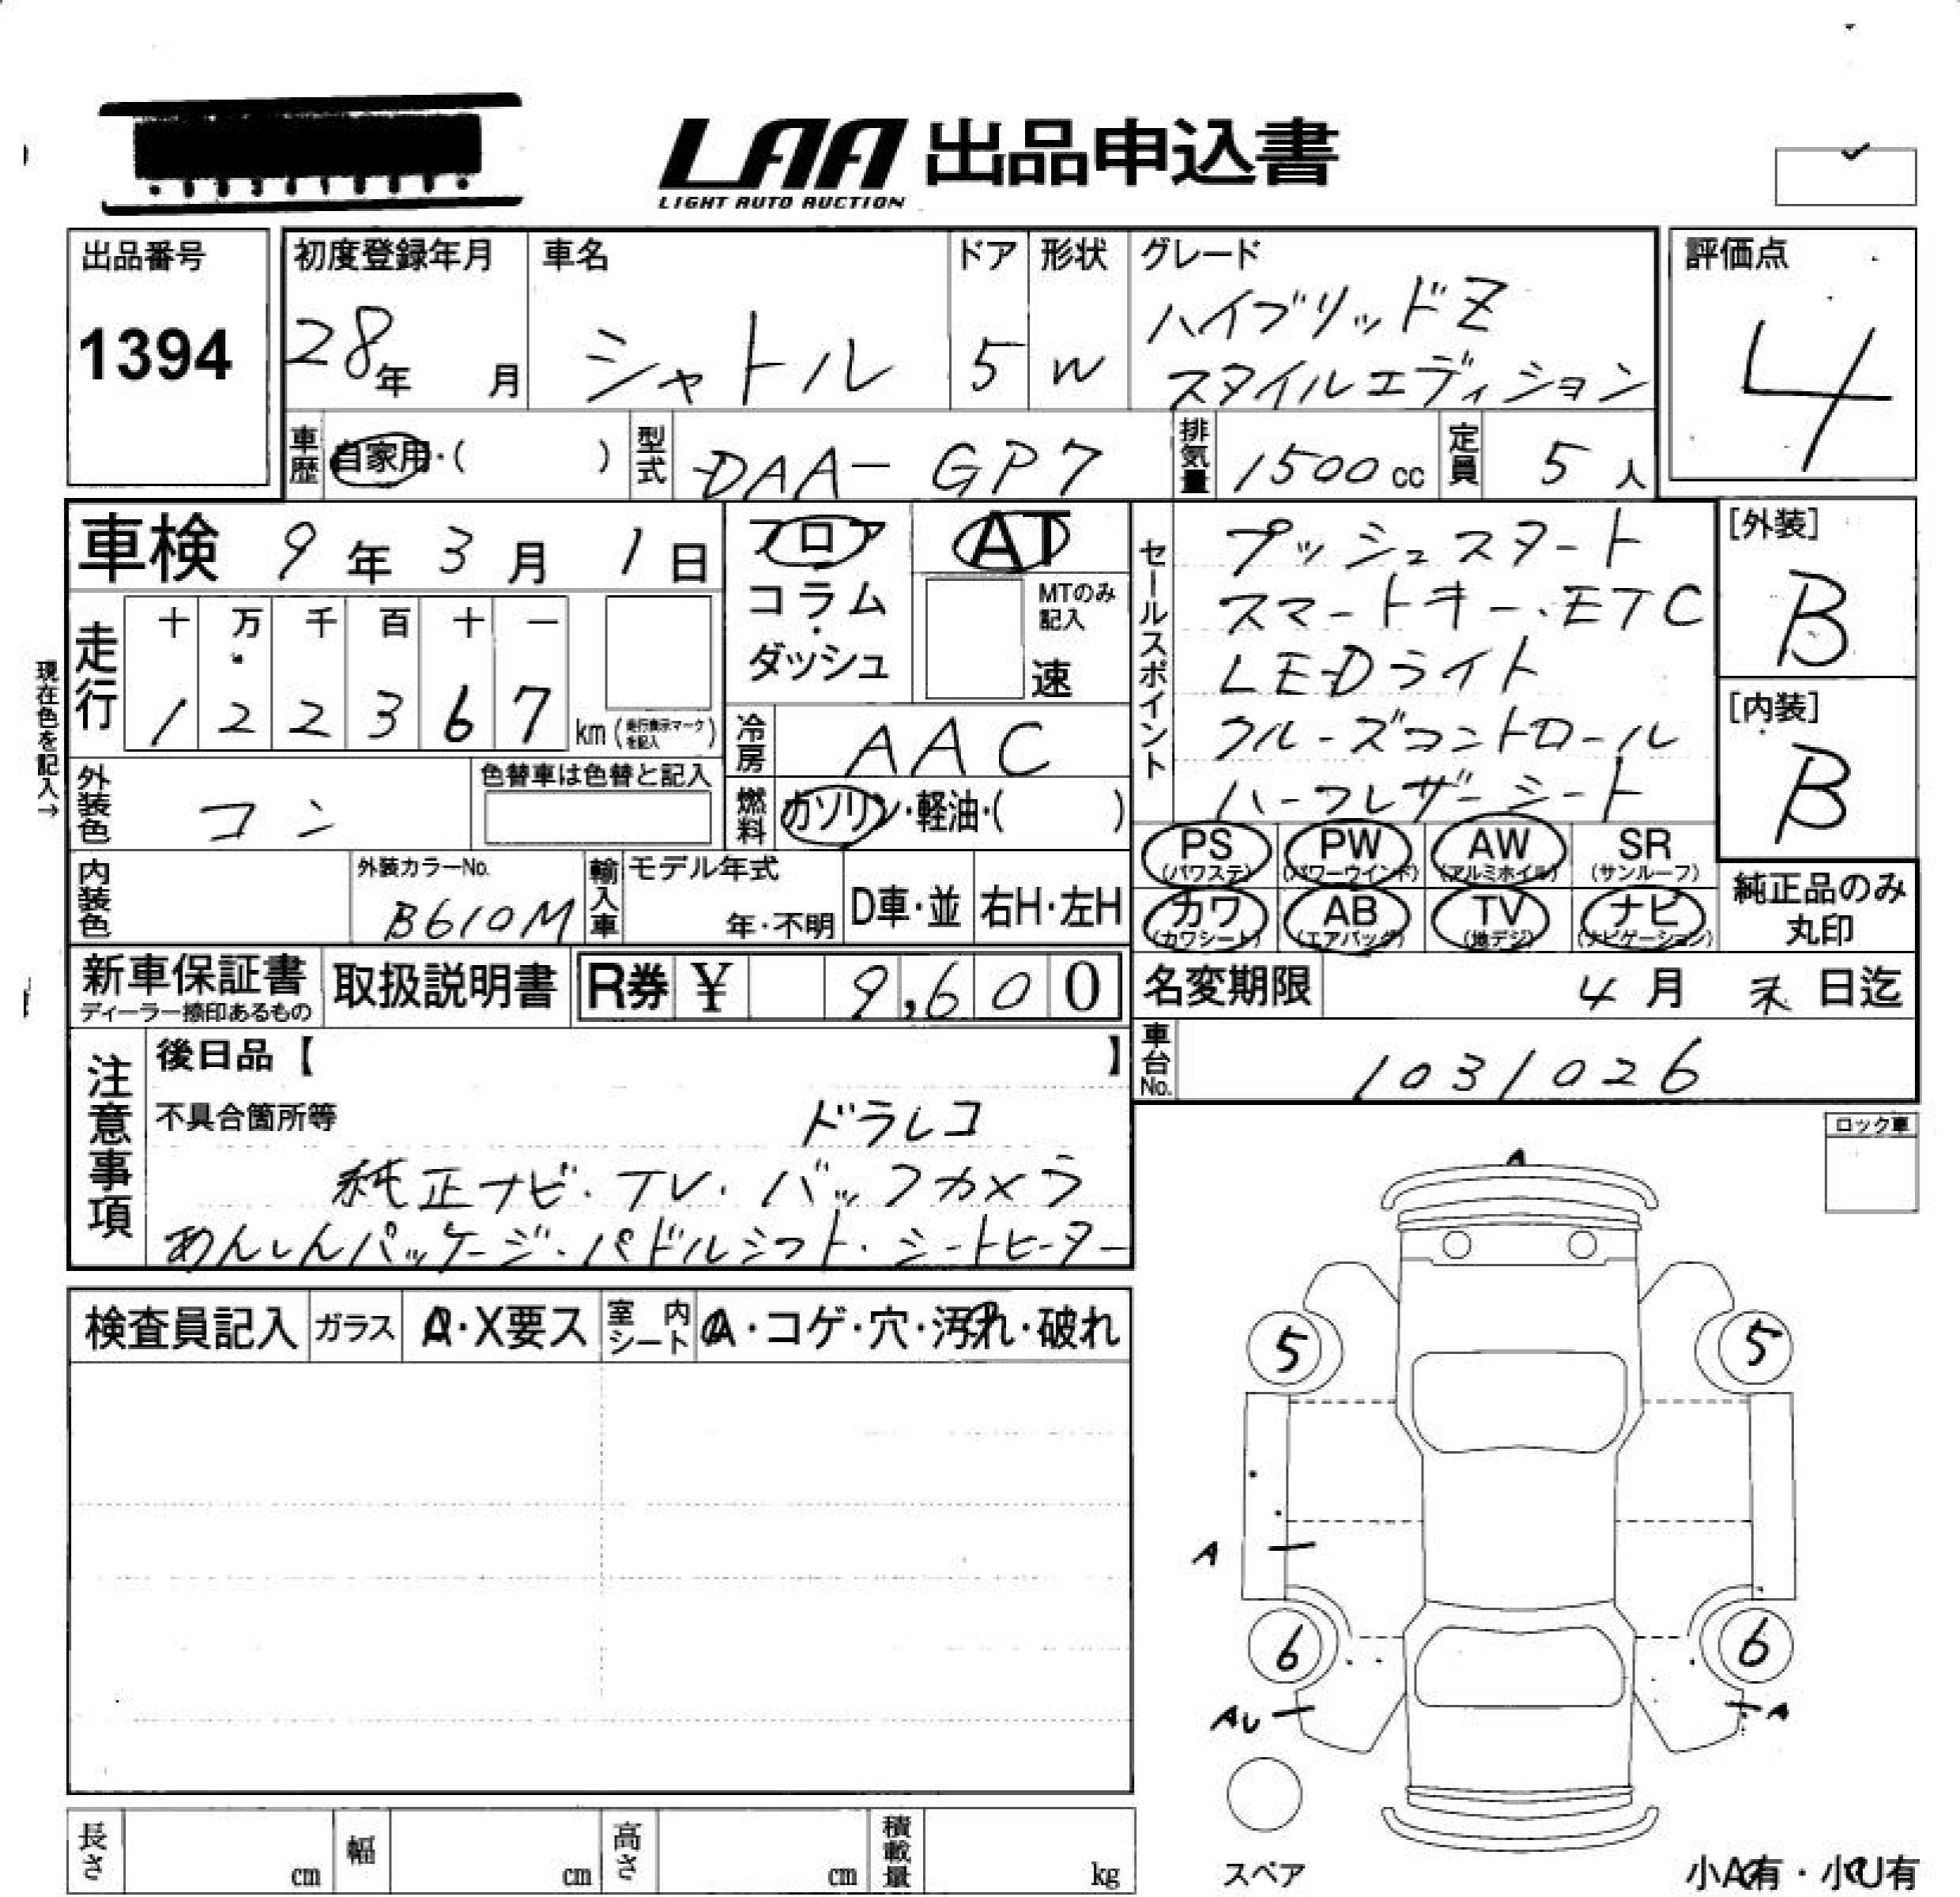 LAA 出品申込書
LIGHT AUTO AUCTION
出品番号
1394
初度登録年月
28年 月
車名
シャトル
ドア
5
形状
W
グレード
ハイブリッドZ
スタイルエディション
評価点
4
車歴 自家用・( )
型式 DAA-GP7
排気量 1500cc
定員 5人
車検 9年3月1日
フロア
コラム・
ダッシュ
AT
MTのみ記入
速
セールスポイント
プッシュスタート
スマートキー・ETC
LEDライト
クルーズコントロール
ハーフレザーシート
[外装]
B
[内装]
B
現在色を記入→
走行
十 万 千 百 十 一
1 2 2 3 6 7 km(走行表示マークを記入)
冷房 AAC
外装色 コン
色替車は色替と記入
燃料 ガソリン・軽油・( )
PS (パワステ)
PW (パワーウインド)
AW (アルミホイル)
SR (サンルーフ)
カワ (カワシート)
AB (エアバッグ)
TV (地デジ)
ナビ (ナビゲーション)
純正品のみ
丸印
内装色
外装カラーNo.
B610M
輸入車
モデル年式
年・不明
D車・並
右H・左H
新車保証書
ディーラー捺印あるもの
取扱説明書
R券 ¥ 9,600
名変期限 4月 末日迄
車台No. 1031026
注意事項
後日品【 】
不具合箇所等
ドラレコ
純正ナビ・TV・バックカメラ
あんしんパッケージ・パドルシフト・シートヒーター
ロック車
検査員記入
ガラス A・X要ス
室内シート A・コゲ・穴・汚れ・破れ
A
5 5
A
6 6
AU A
スペア
小A有・小U有
長さ cm
幅 cm
高さ cm
積載量 kg